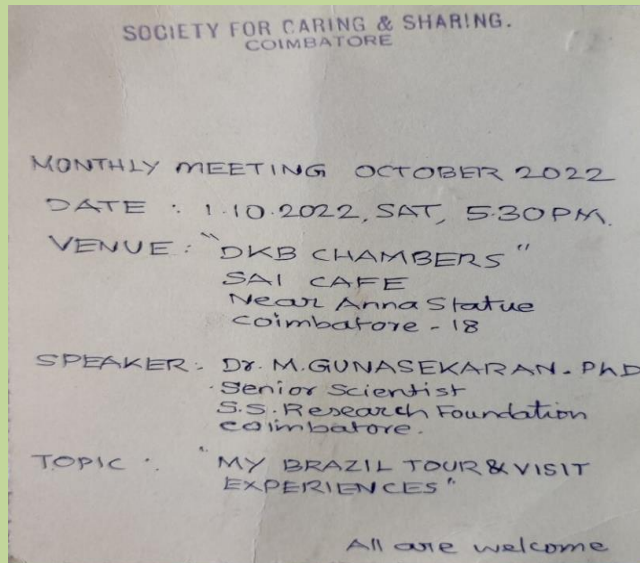 SOCIETY FOR CARING & SHARING.
COIMBATORE
MONTHLY MEETING OCTOBER 2022
DATE : 1.10.2022, SAT, 5.30PM.
VENUE : "DKB CHAMBERS"
SAI CAFE
Near Anna Statue
Coimbatore - 18
SPEAKER:- Dr. M.GUNASEKARAN. PhD
Senior Scientist
S.S. Research Foundation
Coimbatore.
TOPIC :. "MY BRAZIL TOUR & VISIT
EXPERIENCES"
All are welcome